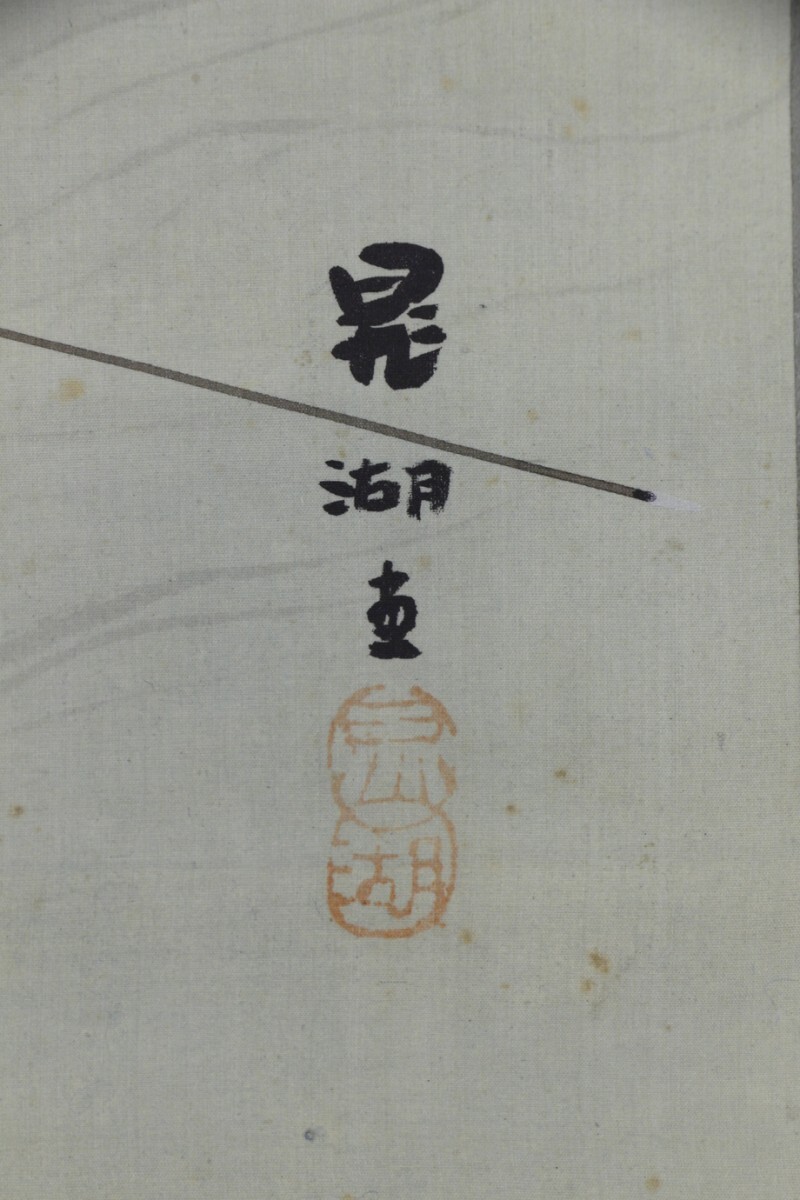 晃
湖
画
湖